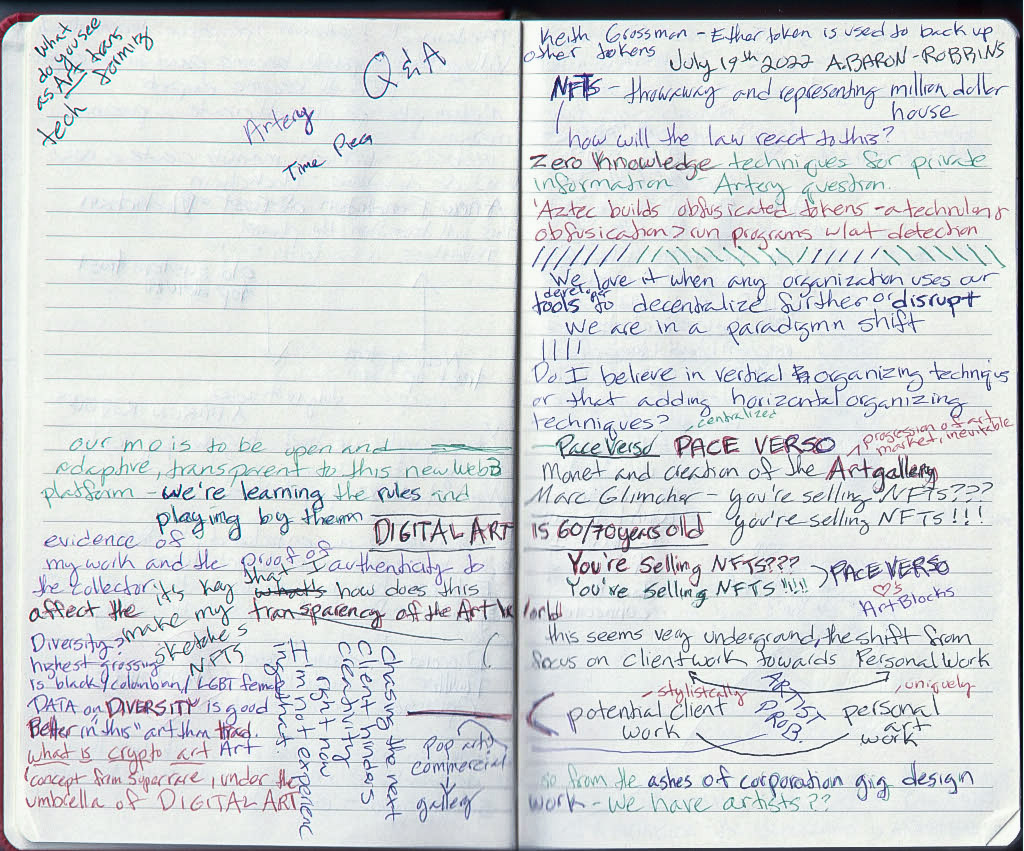 What
do you see
as Art trans
forming
tech
Q & A
Artery
Time Piece
our mo is to be open and
adaptive, transparent to this new Web3
platform - we're learning the rules and
playing by them
DIGITAL ART IS 60/70 years old
evidence of
my work and the proof of authenticity to
the collector it's key that I
what's how does this
affect the make my transparency of the Art World
sketches
NFTS
Diversity?
highest grossing
is black/ /LGBT female
DATA on DIVERSITY is good
Better in "this" art than trad.
Art
what is crypto art
concept from Superrare, under the
umbrella of DIGITAL ART
Chasing the next
client hinders
creativity
right now
I'm not experienc
ing that
pop art/
commercial
gallery
Keith Grossman - Ether token is used to back up
other tokens
July 19th 2022 A.BARON-ROBBINS
NFTS - throwaway and representing million dollar
house
how will the law react to this?
Zero Knowledge techniques for private
information Artery question.
'Aztec builds obfusicated tokens - a technulogr
obfusication > run programs w/out detection
We love it when any organization uses our
developer
tools to decentralize further or disrupt
We are in a paradigmn shift
Do I believe in vertical organizing technique
or that adding horizontal organizing
techniques?
centralized
Pace Verso PACE VERSO
progession of art
market, inevitable
Monet and creation of the Art gallery
Marc Glimcher - you're selling NFTS???
you're selling NFTS!!!
You're selling NFTS???
You're selling NFTS!!!!
PACE VERSO
♡'s
Art Blocks
this seems very underground, the shift from
focus on client work towards Personal Work
stylistically
uniquely
potential client
work
ARTIST
PROB?
personal
art
work
so from the ashes of corporation gig design
work - we have artists??